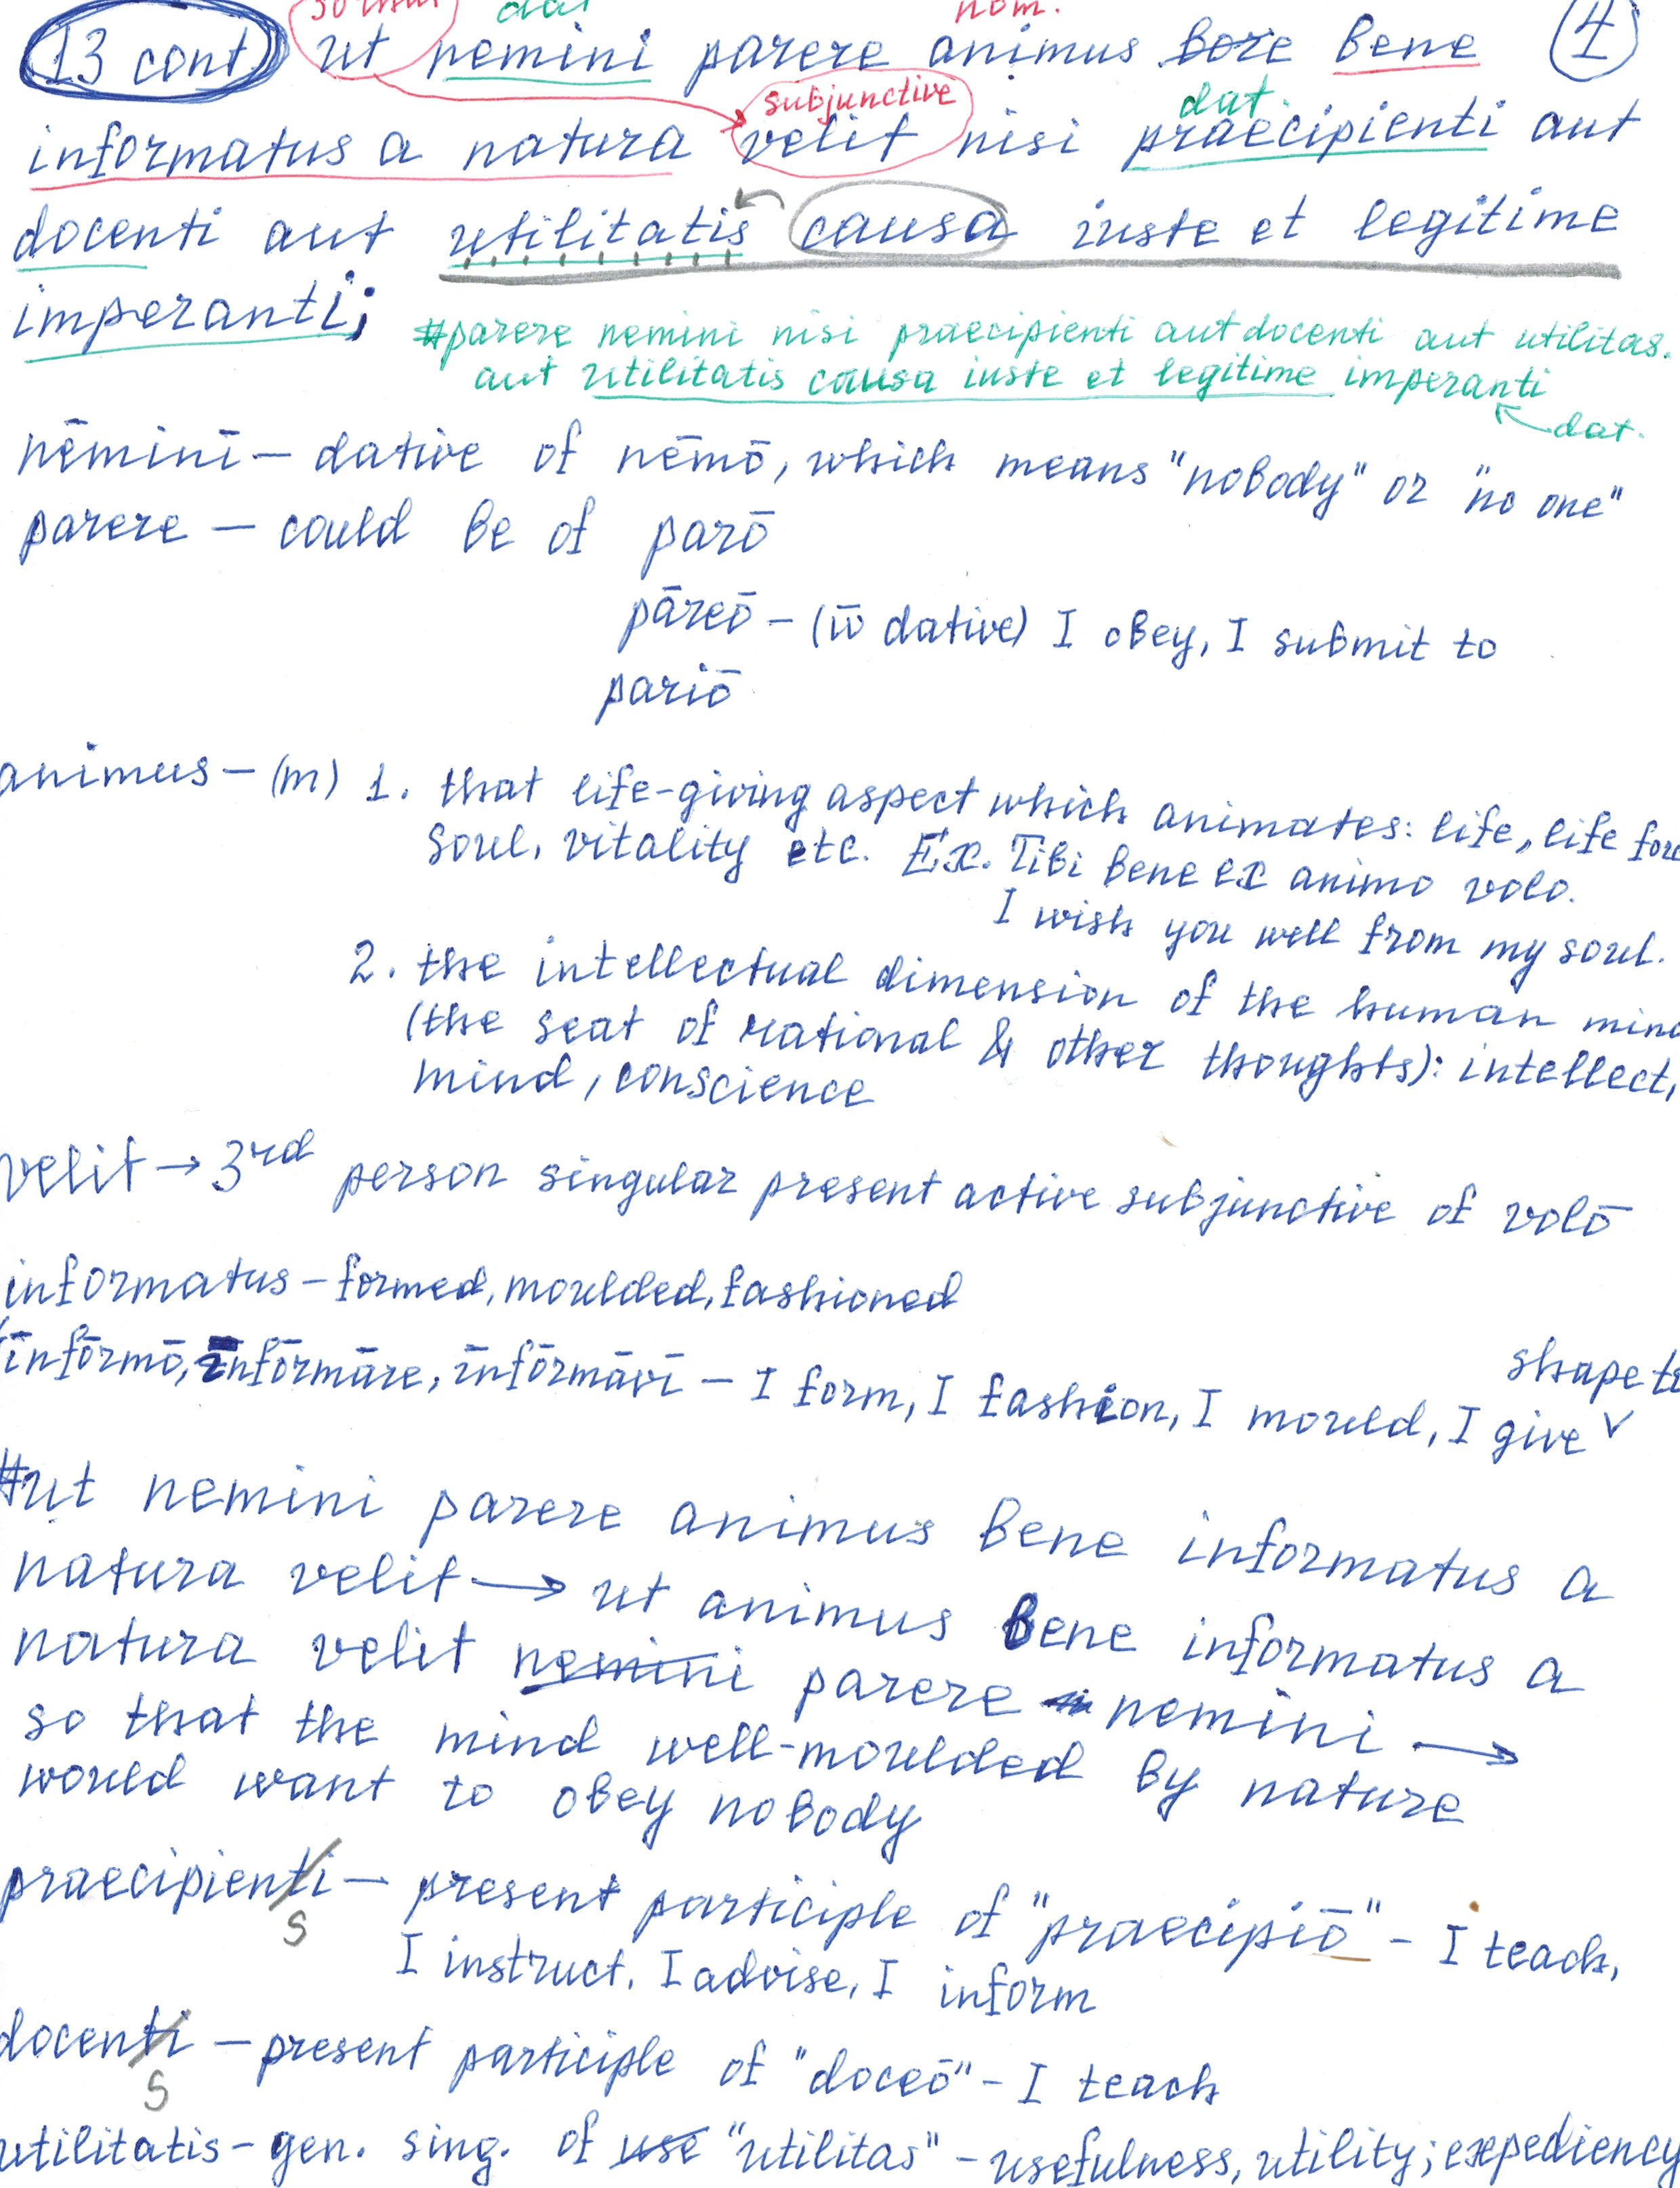 so that dat nom.
13 cont ut nemini parere animus bore bene 4
subjunctive dat.
informatus a natura velit nisi praecipienti aut
docenti aut utilitatis causa iuste et legitime
imperanti;
#parere nemini nisi praecipienti aut docenti aut utilitas.
aut utilitatis causa iuste et legitime imperanti
dat.
nēminī – dative of nēmō, which means "nobody" or "no one"
parere – could be of parō
pāreō – (w̄ dative) I obey, I submit to
pariō
animus – (m) 1. that life-giving aspect which animates: life, life
soul, vitality etc. Ex. Tibi bene ex animo volo.
I wish you well from my soul.
2. the intellectual dimension of the human mind
(the seat of rational & other thoughts): intellect,
mind, conscience
velit → 3rd person singular present active subjunctive of volō
informatus – formed, moulded, fashioned
īnfōrmō, īnfōrmāre, īnfōrmāvī – I form, I fashion, I mould, I give
shape to
#ut nemini parere animus bene informatus a
natura velit → ut animus bene informatus a
natura velit nemini parere nemini →
so that the mind well-moulded by nature
would want to obey nobody
praecipienti – present participle of "praecipiō" – I teach,
s
I instruct, I advise, I inform
docenti – present participle of "doceō" – I teach
s
utilitatis – gen. sing. of use "utilitas" – usefulness, utility; expediency